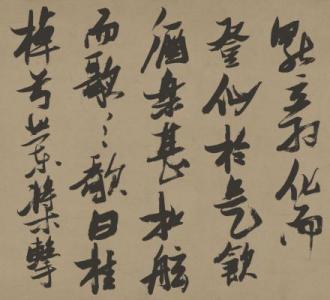 獨立羽化而
登仙於是飲
酒樂甚扣舷
而歌之歌曰桂
棹兮蘭槳擊